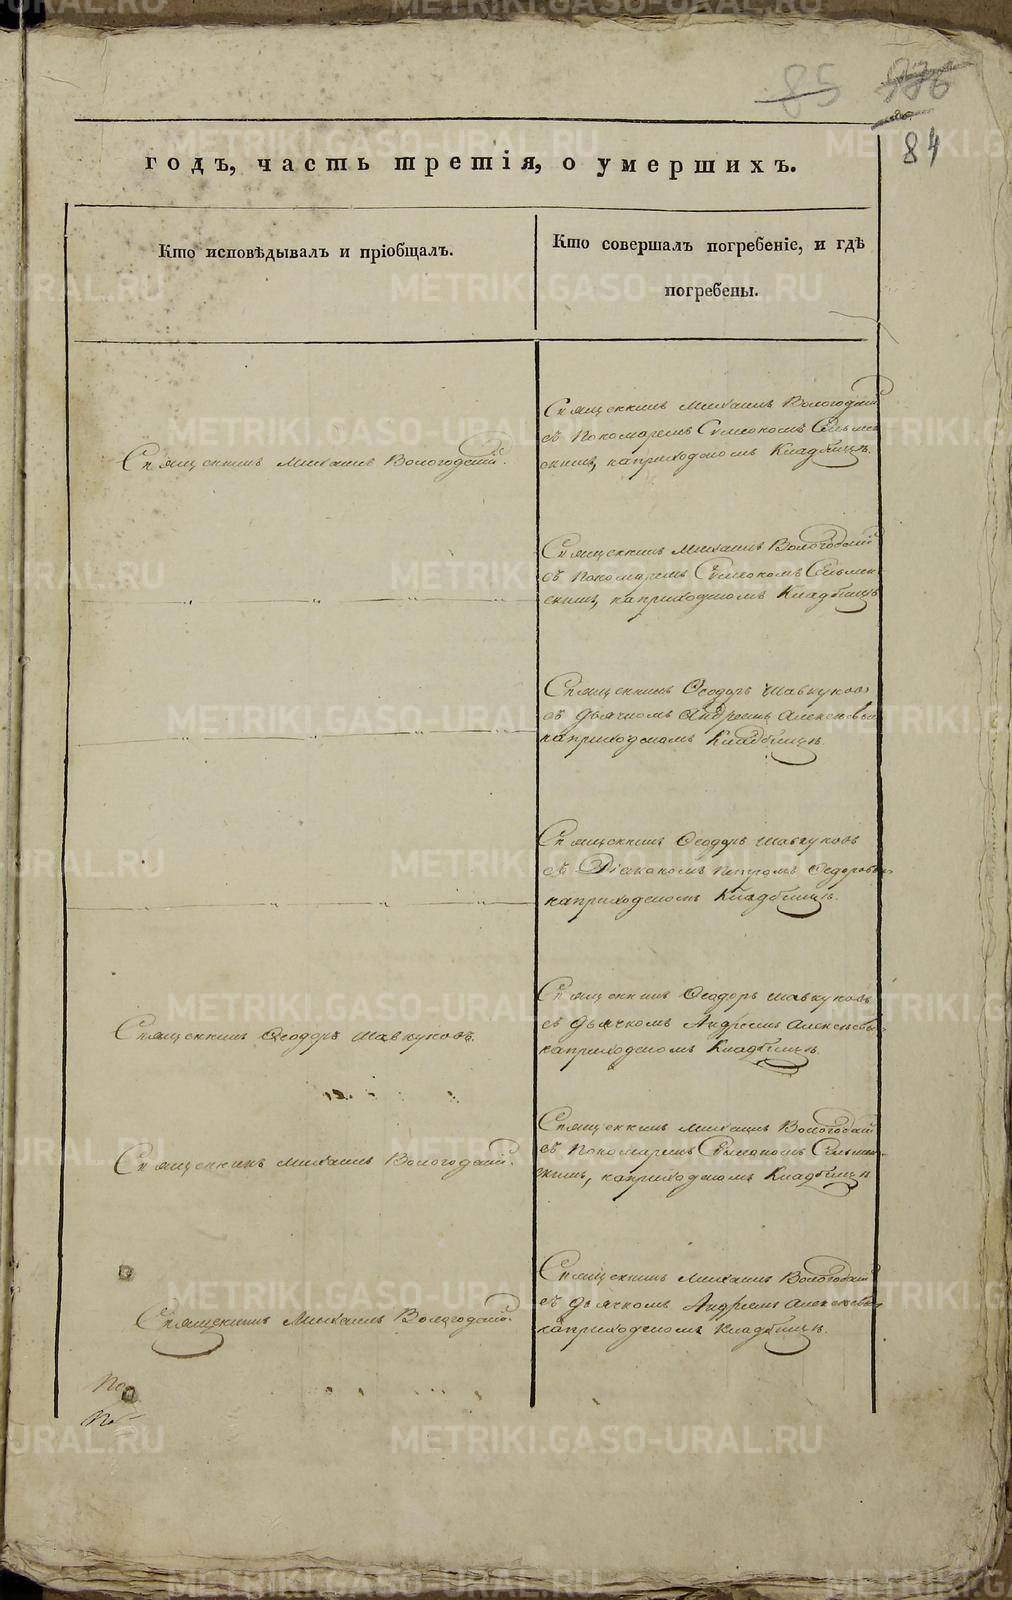 85
84
годъ, часть третія, о умершихъ.
Кто исповѣдывалъ и пріобщалъ.
Кто совершалъ погребеніе, и гдѣ
погребены.
Священникъ Михаилъ Вологодскій.
Священникъ Михаилъ Вологодскій
съ Пономаремъ Сѵмеономъ
на приходскомъ Кладбищѣ.
Священникъ Михаилъ Вологодскій
съ Пономаремъ Сѵмеономъ
на приходскомъ Кладбищѣ
Священникъ Ѳеодоръ Шавкуновъ
съ дьячкомъ Андреемъ Алексѣевы
на приходскомъ Кладбищѣ.
Священникъ Ѳеодоръ Шавкуновъ
съ Діакономъ Петромъ Ѳедоровы
на приходскомъ Кладбищѣ.
Священникъ Ѳеодоръ Шавкуновъ.
Священникъ Ѳеодоръ Шавкуновъ
съ дьячкомъ Андреемъ Алексѣевы
на приходскомъ Кладбищѣ.
Священникъ Михаилъ Вологодскій.
Священникъ Михаилъ Вологодскій
съ Пономаремъ Сѵмеономъ
на приходскомъ Кладбищѣ
Священникъ Михаилъ Вологодскій.
Священникъ Михаилъ Вологодскій
съ дьячкомъ Андреемъ Алексѣевы
на приходскомъ Кладбищѣ.
METRIKI.GASO-URAL.RU